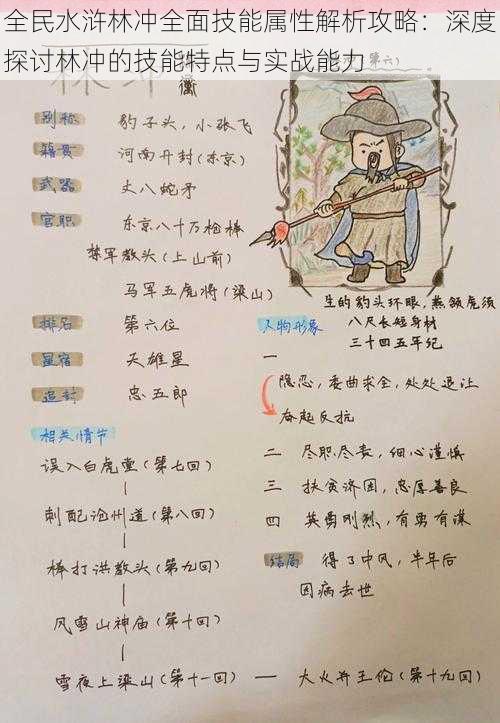 全民水浒林冲全面技能属性解析攻略：深度
探讨林冲的技能特点与实战能力
林冲
(第六)
衝
别称 豹子头，小张飞
籍贯 河南开封(东京)
武器 丈八蛇矛
官职 东京八十万枪棒
禁军教头(上山前)
马军五虎将(梁山)
排名 第六位
星宿 天雄星
追封 忠五郎
相关情节
误入白虎堂(第七回)
刺配沧州道(第八回)
棒打洪教头(第九回)
风雪山神庙(第十回)
雪夜上梁山(第十一回) — 大火并王伦(第十九回)
生的豹头环眼，燕颔虎须
八尺长短身材
三十四五年纪
人物形象
一
隐忍，委曲求全，处处退让
奋起反抗
二 尽职尽责，细心谨慎
三 扶贫济困，忠厚善良
四 英勇刚烈，有勇有谋
结局 得了中风，半年后
因病去世